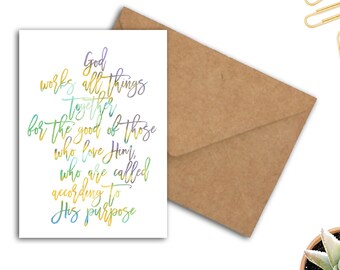 God
works all things
together
for the good of those
who love Him,
who are called
according to
His purpose